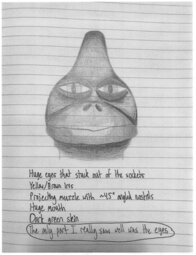 Huge eyes that stuck out of the sockets
Yellow/Brown Iris
Projecting muzzle with ~45° angled nostrils
Huge mouth
Dark green skin
The only part I really saw well was the eyes